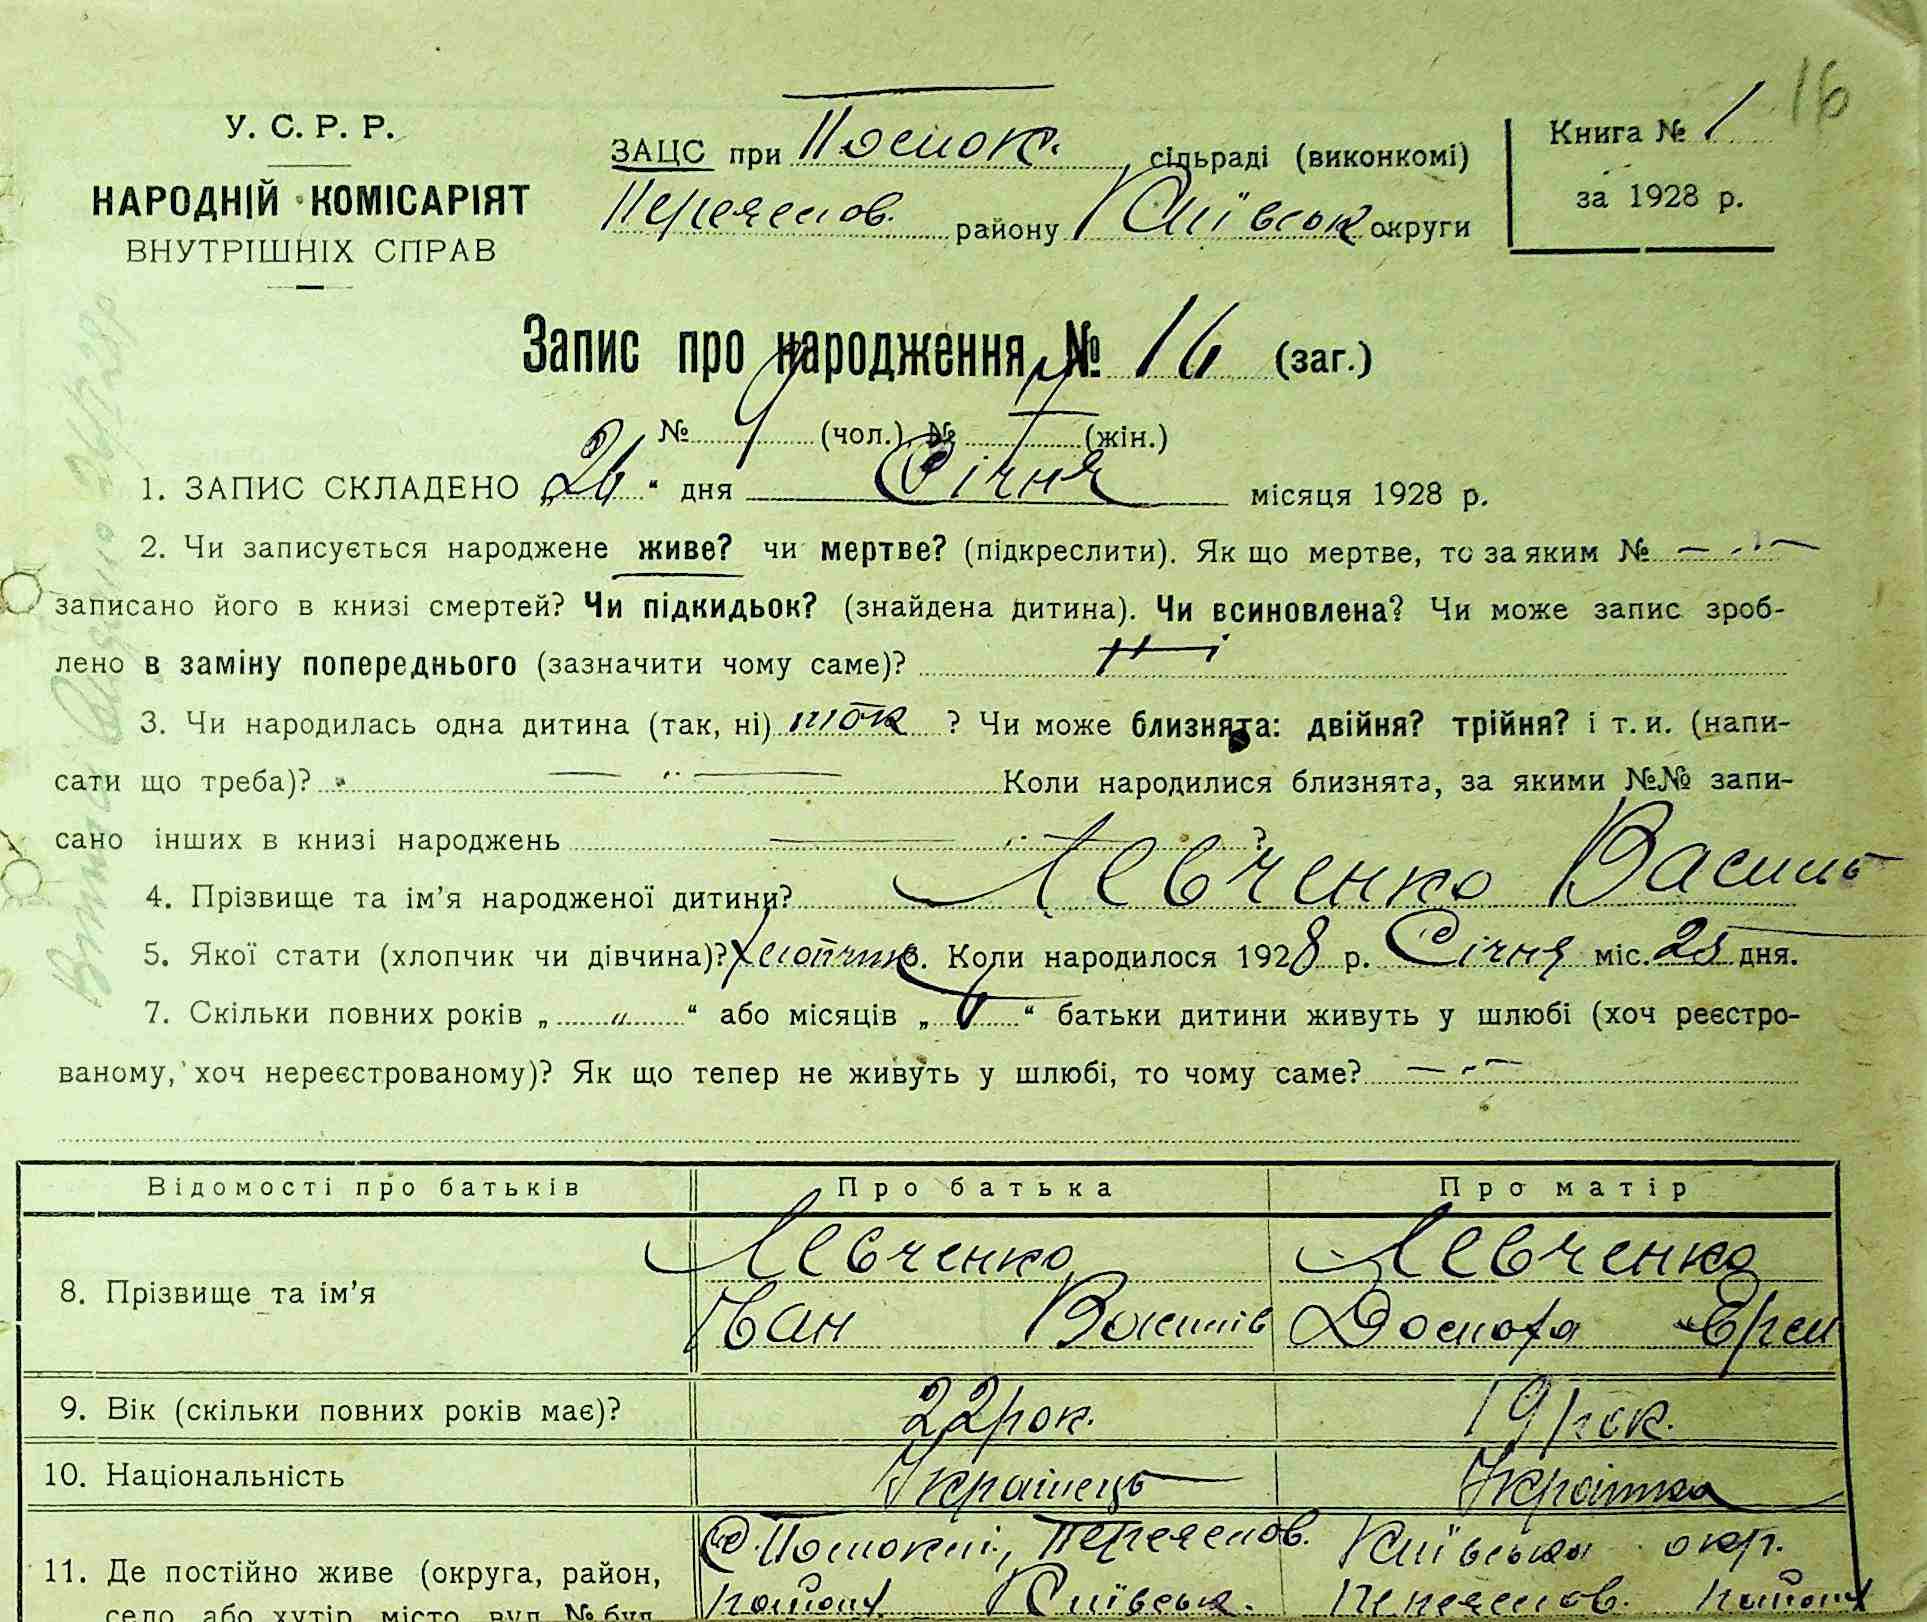 16
У. С. Р. Р.
НАРОДНІЙ КОМІСАРІЯТ
ВНУТРІШНІХ СПРАВ
ЗАЦС при Посток. сільраді (виконкомі)
Переяслов. району Київськ округи
Книга № 1
за 1928 р.
Запис про народження № 16 (заг.)
№ 9 (чол.) № 7 (жін.)
1. ЗАПИС СКЛАДЕНО „26“ дня Січня місяця 1928 р.
2. Чи записується народжене живе? чи мертве? (підкреслити). Як що мертве, то за яким №
записано його в книзі смертей? Чи підкидьок? (знайдена дитина). Чи всиновлена? Чи може запис зроб-
лено в заміну попереднього (зазначити чому саме)? ні
3. Чи народилась одна дитина (так, ні) так ? Чи може близнята: двійня? трійня? і т. и. (напи-
сати що треба)? Коли народилися близнята, за якими №№ запи-
сано інших в книзі народжень ?
4. Прізвище та ім’я народженої дитини? Левченко Василь
5. Якої стати (хлопчик чи дівчина)? Хлопчик. Коли народилося 1928 р. Січня міс. 25 дня.
7. Скільки повних років „ „ “ або місяців „ “ батьки дитини живуть у шлюбі (хоч реєстро-
ваному, хоч нереєстрованому)? Як що тепер не живуть у шлюбі, то чому саме?
Відомості про батьків Про батька Про матір
8. Прізвище та ім’я Левченко Левченко
Іван Василів
9. Вік (скільки повних років має)? 22 рок. 19 рок.
10. Національність Українець Українка
11. Де постійно живе (округа, район, Переяслов. Київська окр.
село або хутір, місто, вул. № буд. району Київськ. Переяслов. району